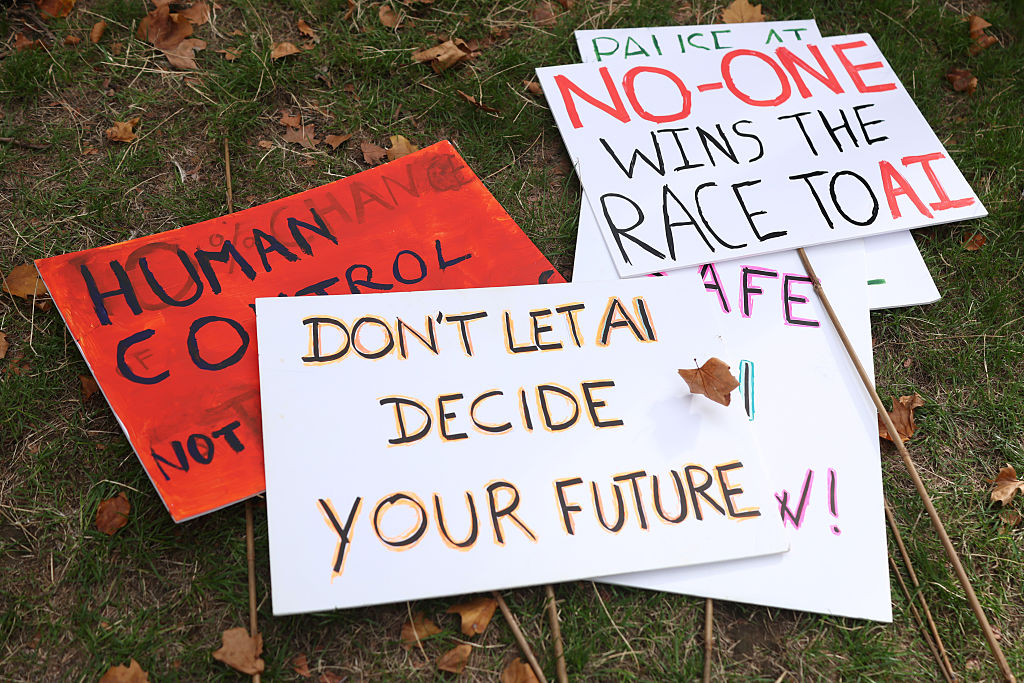 PAUSE AI
NO-ONE
WINS THE
RACE TO AI
HUMAN
CONTROL
NOT
AFE
DON'T LET AI
DECIDE
YOUR FUTURE
W!